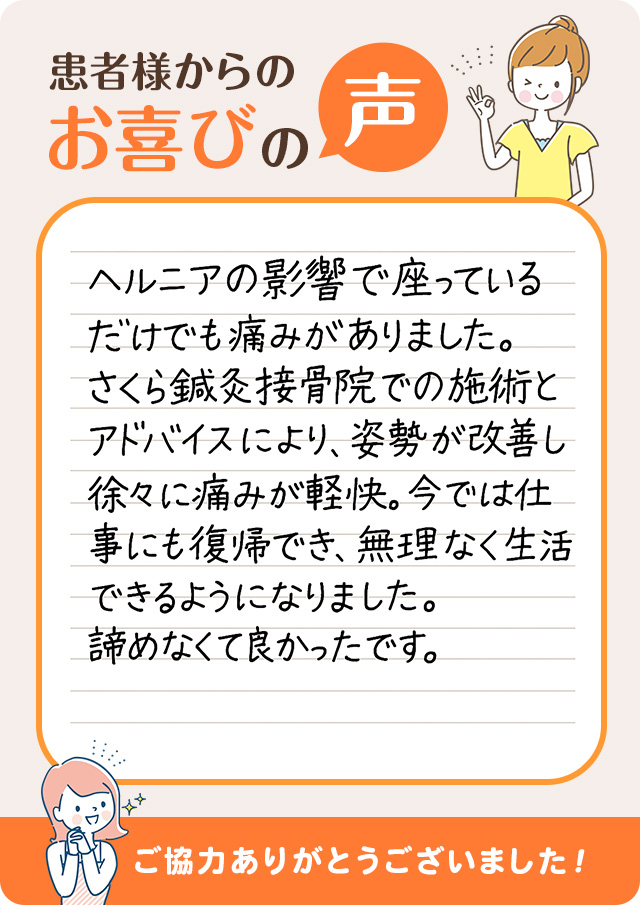 患者様からの
お喜びの声
ヘルニアの影響で座っている
だけでも痛みがありました。
さくら鍼灸接骨院での施術と
アドバイスにより、姿勢が改善し
徐々に痛みが軽快。今では仕
事にも復帰でき、無理なく生活
できるようになりました。
諦めなくて良かったです。
ご協力ありがとうございました！